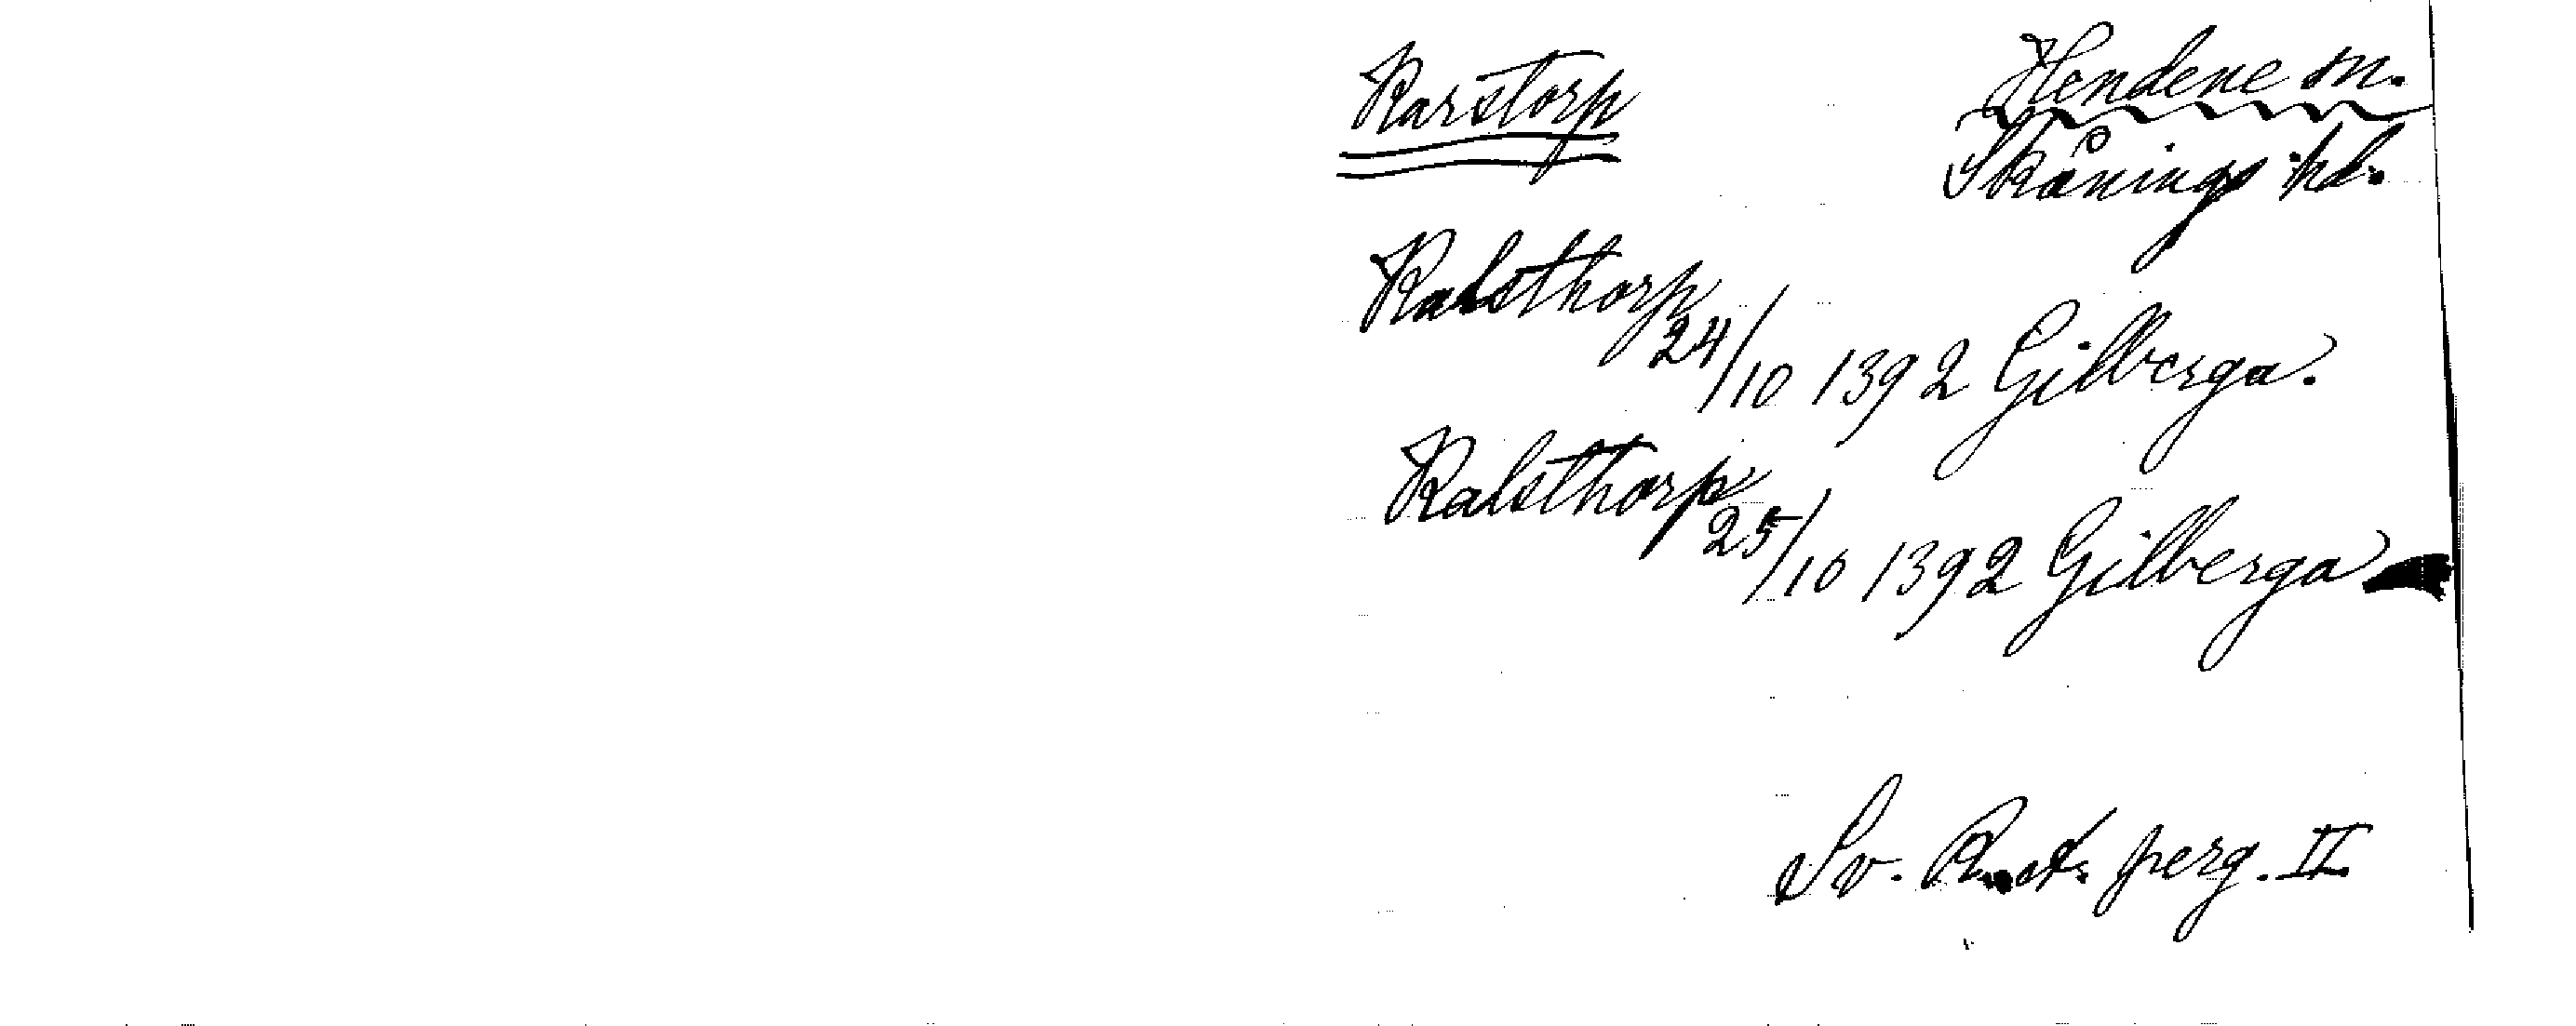 Karstorp
Hendene sn.
Skånings hd.
Kalsthorp
24/10 1392 Gilberga.
Kalsthorp
25/10 1392 Gilberga
Sv. perg. II